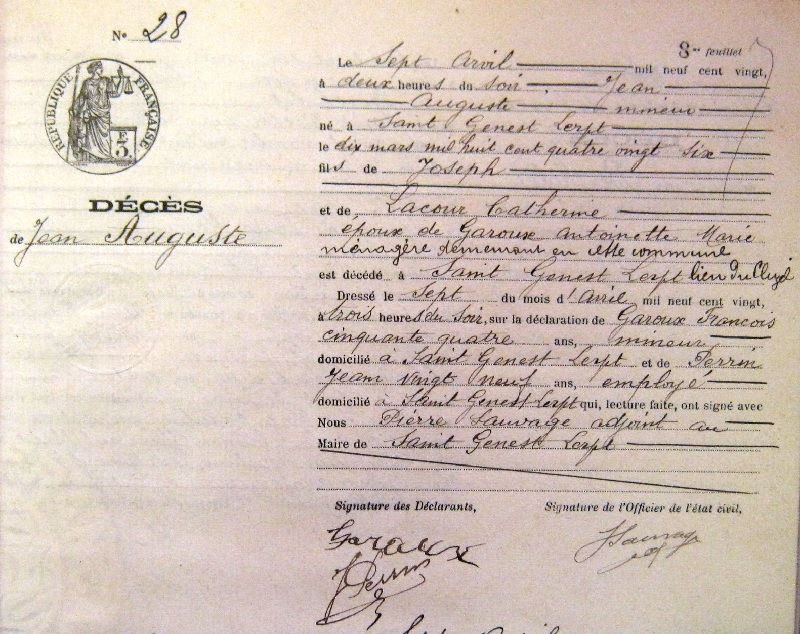 N° 28
8me feuillet
RÉPUBLIQUE FRANÇAISE
F
3
DÉCÈS
de Jean Auguste
Le Sept Avril mil neuf cent vingt,
à deux heures du soir, Jean
Auguste mineur
né à Saint Genest Lerpt
le dix mars mil huit cent quatre vingt six
fils de Joseph
et de Lacour Catherine
époux de Garoux Antoinette Marie
ménagère demeurant en cette commune
est décédé à Saint Genest Lerpt lieu du Cluzel
Dressé le Sept du mois d'Avril mil neuf cent vingt,
à trois heures du soir, sur la déclaration de Garoux François
cinquante quatre ans, mineur
domicilié à Saint Genest Lerpt et de Perrin
Jean vingt neuf ans, employé
domicilié à Saint Genest Lerpt qui, lecture faite, ont signé avec
Nous Pierre Sauvage adjoint au
Maire de Saint Genest Lerpt
Signature des Déclarants,
Signature de l'Officier de l'état civil,
Garoux
JPerrin
Sauvage